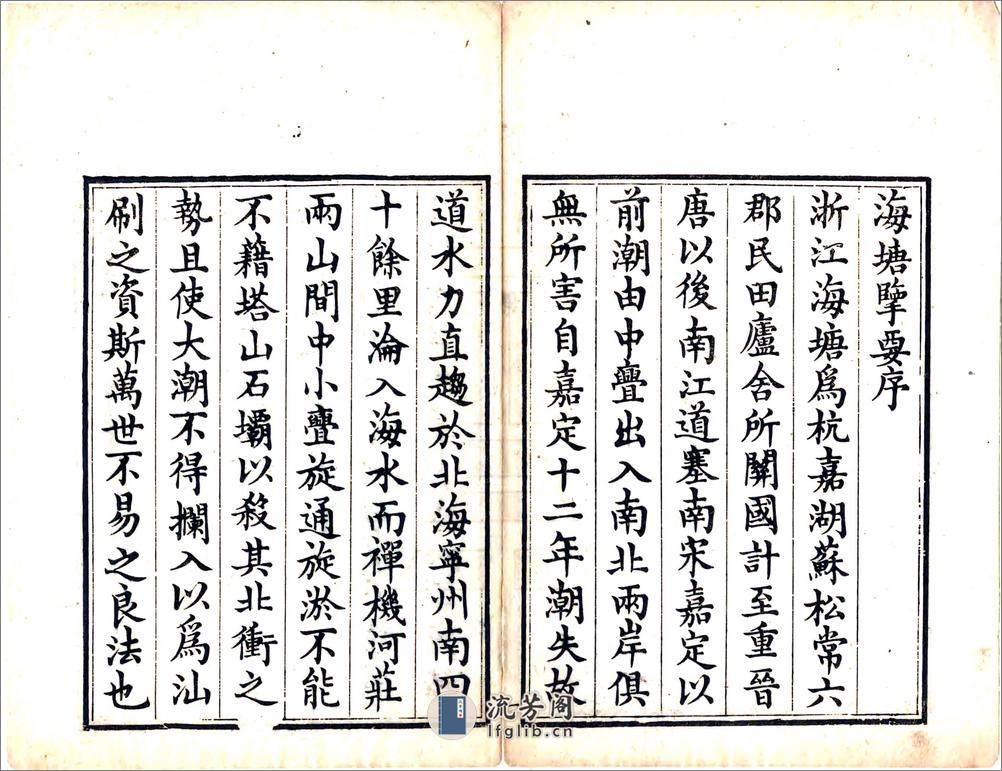 海塘擥要序
浙江海塘爲杭嘉湖蘇松常六
郡民田廬舍所關國計至重晉
唐以後南江道塞南宋嘉定以
前潮由中亹出入南北兩岸俱
無所害自嘉定十二年潮失故
道水力直趨於北海寧州南四
十餘里淪入海水而禪機河莊
兩山間中小亹旋通旋淤不能
不藉塔山石壩以殺其北衝之
勢且使大潮不得攔入以爲汕
刷之資斯萬世不易之良法也
流芳阁
lfglib.cn